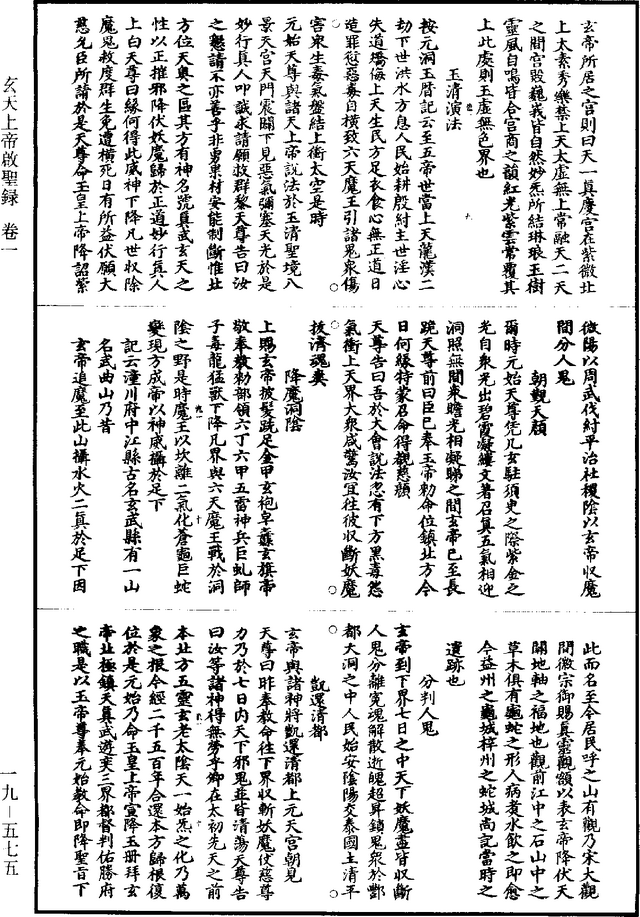 玄帝所居之宮則曰天一真慶宮在紫微北
上太素秀樂禁上天太虛無上常融天二天
之間宮殿巍義皆自然妙炁所結琳琅玉樹
靈風自鳴皆合宮商之韻紅光紫雲常覆其
上此處則玉虛無色界也
玉清演法
按元洞玉曆記云至五帝世當上天龍漢二
劫下世洪水方息人民始耕殷紂主世淫心
失道矯侮上天生民方足衣食心無正道日
造罪愆惡毒自橫致六天魔王引諸鬼眾傷
害眾生毒氣盤結上衝太空是時
元始天尊與諸天上帝說法於玉清聖境八
景天宮天門震闢下見惡氣彌塞天光於是
妙行真人叩誠求請願救群黎天尊告曰汝
之懇請不亦善乎非勇果材安能制斷惟北
方位天奧之區其方有神名號真武玄天之
性以正推邪降伏妖魔歸於正道妙行真人
上白天尊曰緣何得此威神下降凡世收除
魔鬼救度群生免遭橫死日有所益伏願大
慈允臣所請於是天尊命玉皇上帝降詔紫
玄天上帝啟聖録 卷一
微陽以周武伐紂平治社稷陰以玄帝收魔
間分人鬼
朝覲天顏
爾時元始天尊凭几玄駐須臾之際紫金之
光自眾光出碧霞凝縷文著召真五氣相迎
洞照無間眾瞻光相凝睇之間玄帝已至長
跪天尊前曰臣已奉玉帝勅命位鎮北方今
日何緣特蒙召命得覩慈顏
天尊告曰吾於大會說法忽有下方黑毒怨
氣衝上天界大眾咸驚汝宜往彼收斷妖魔
拔濟魂爽
降魔洞陰
上賜玄帝披髮跣足金甲玄袍皁纛玄旗帝
敬奉教勅部領六丁六甲五雷神兵巨虬師
子毒龍猛獸下降凡界與六天魔王戰於洞
陰之野是時魔王以坎離二氣化蒼龜巨蛇
變現方成帝以神威攝於足下
記云潼川府中江縣古名玄武縣有一山
名武曲山乃昔
玄帝追魔至此山攝水火二真於足下因
此而名至今居民呼之山有觀乃宋大觀
間徽宗御賜真靈觀額以表玄帝降伏天
關地軸之福地也觀前江中之石山中之
草木俱有龜蛇之形人病煑水飲之即愈
今益州之龜城梓州之蛇城尚記當時之
遺跡也
分判人鬼
玄帝到下界七日之中天下妖魔盡皆收斷
人鬼分離冤魂解散逝魄超昇鎖鬼眾於酆
都大洞之中人民始安陰陽交泰國土清平
凱還清都
玄帝與諸神將凱還清都上元天宮朝見
天尊曰昨奉教命往下界收斬妖魔仗慈尊
力乃於七日內天下邪鬼並皆清蕩天尊告
曰汝等諸神得無勞乎卿在太初先天之前
本北方五靈玄老太陰天一始炁之化乃萬
象之根今經二千五百年合還本方歸根復
位於是元始乃命玉皇上帝宣降玉册拜玄
帝北極鎮天真武遊奕三界都督判佑勝府
之職是以玉帝尊奉元始教命即降聖旨下
一九－五七五